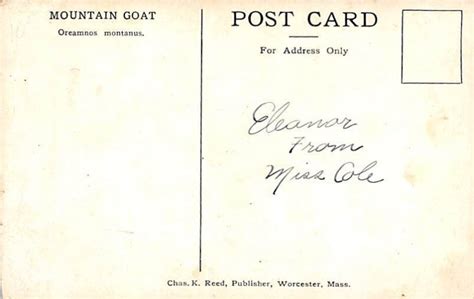 MOUNTAIN GOAT
Oreamnos montanus.
POST CARD
For Address Only
Eleanor
From
Miss Cole
Chas. K. Reed, Publisher, Worcester, Mass.